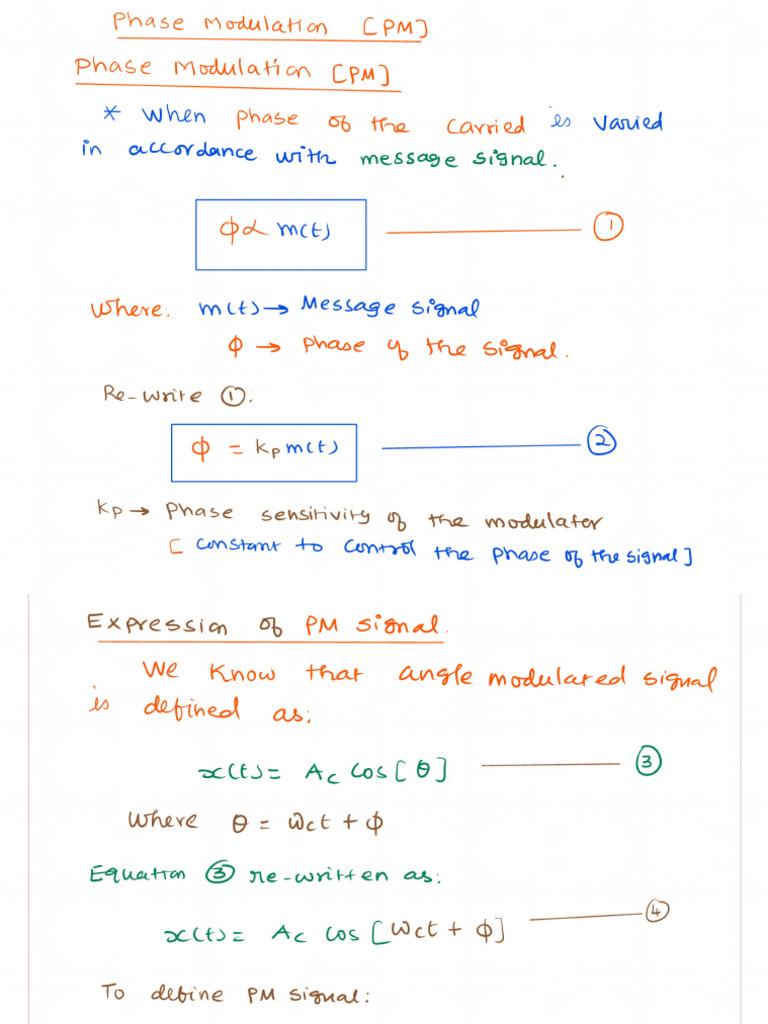 Phase Modulation [PM]
Phase Modulation [PM]
* When phase of the carried is varied
in accordance with message signal.
φ∝ m(t) ——— ①
Where. m(t) → Message signal
φ → Phase of the signal.
Re-write ①.
φ = kp m(t) ——— ②
kp → Phase sensitivity of the modulater
[ constant to control the phase of the signal]
Expression of PM signal.
We know that angle modulated signal
is defined as:
x(t) = Ac cos[θ] ——— ③
Where θ = ωct + φ
Equation ③ re-written as:
x(t) = Ac cos [ωct + φ] ——— ④
To define PM signal: